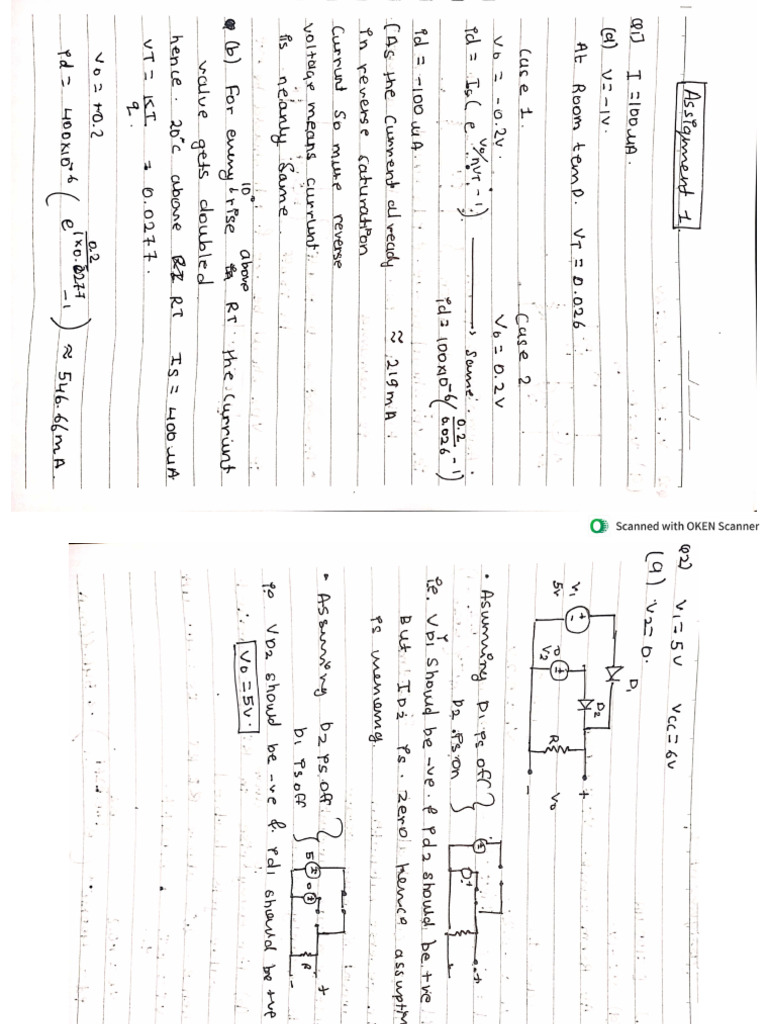 Assignment 1
Q1] I = 100 uA.
(a) V = -1V.
At Room temp. VT = 0.026
Case 1.
Case 2
VD = -0.2V.
VD = 0.2V
id = Is ( e^VD/nVT - 1 ) → same.
id = -100 uA.
id = 100x10^-6 ( 0.2/0.026 - 1 )
(As the current already
≈ 219 mA
in reverse saturation
Current so more reverse
voltage means current
is nearly same
(b) For every 10° rise above RT the current
value gets doubled
hence 20°C above RT Is = 400 uA
VT = KT/q = 0.0277.
VD = +0.2
id = 400x10^-6 ( e^0.2/1x0.0277 - 1 ) ≈ 546.66 mA.
Scanned with OKEN Scanner
Q2) V1 = 5V Vcc = 6V
(a) V2 = 0.
V1
5V
D1
0
V2
D2
R
+
Vo
-
• Asumming D1 is off
D2 is on
i.e. VD1 should be -ve & id2 should be +ve
But ID2 is zero hence assumptn
is
• Assuming D2 is off
D1 is off
5
0
R
+
-
i.e VD2 should be -ve & id1 should be +ve
Vo = 5V.